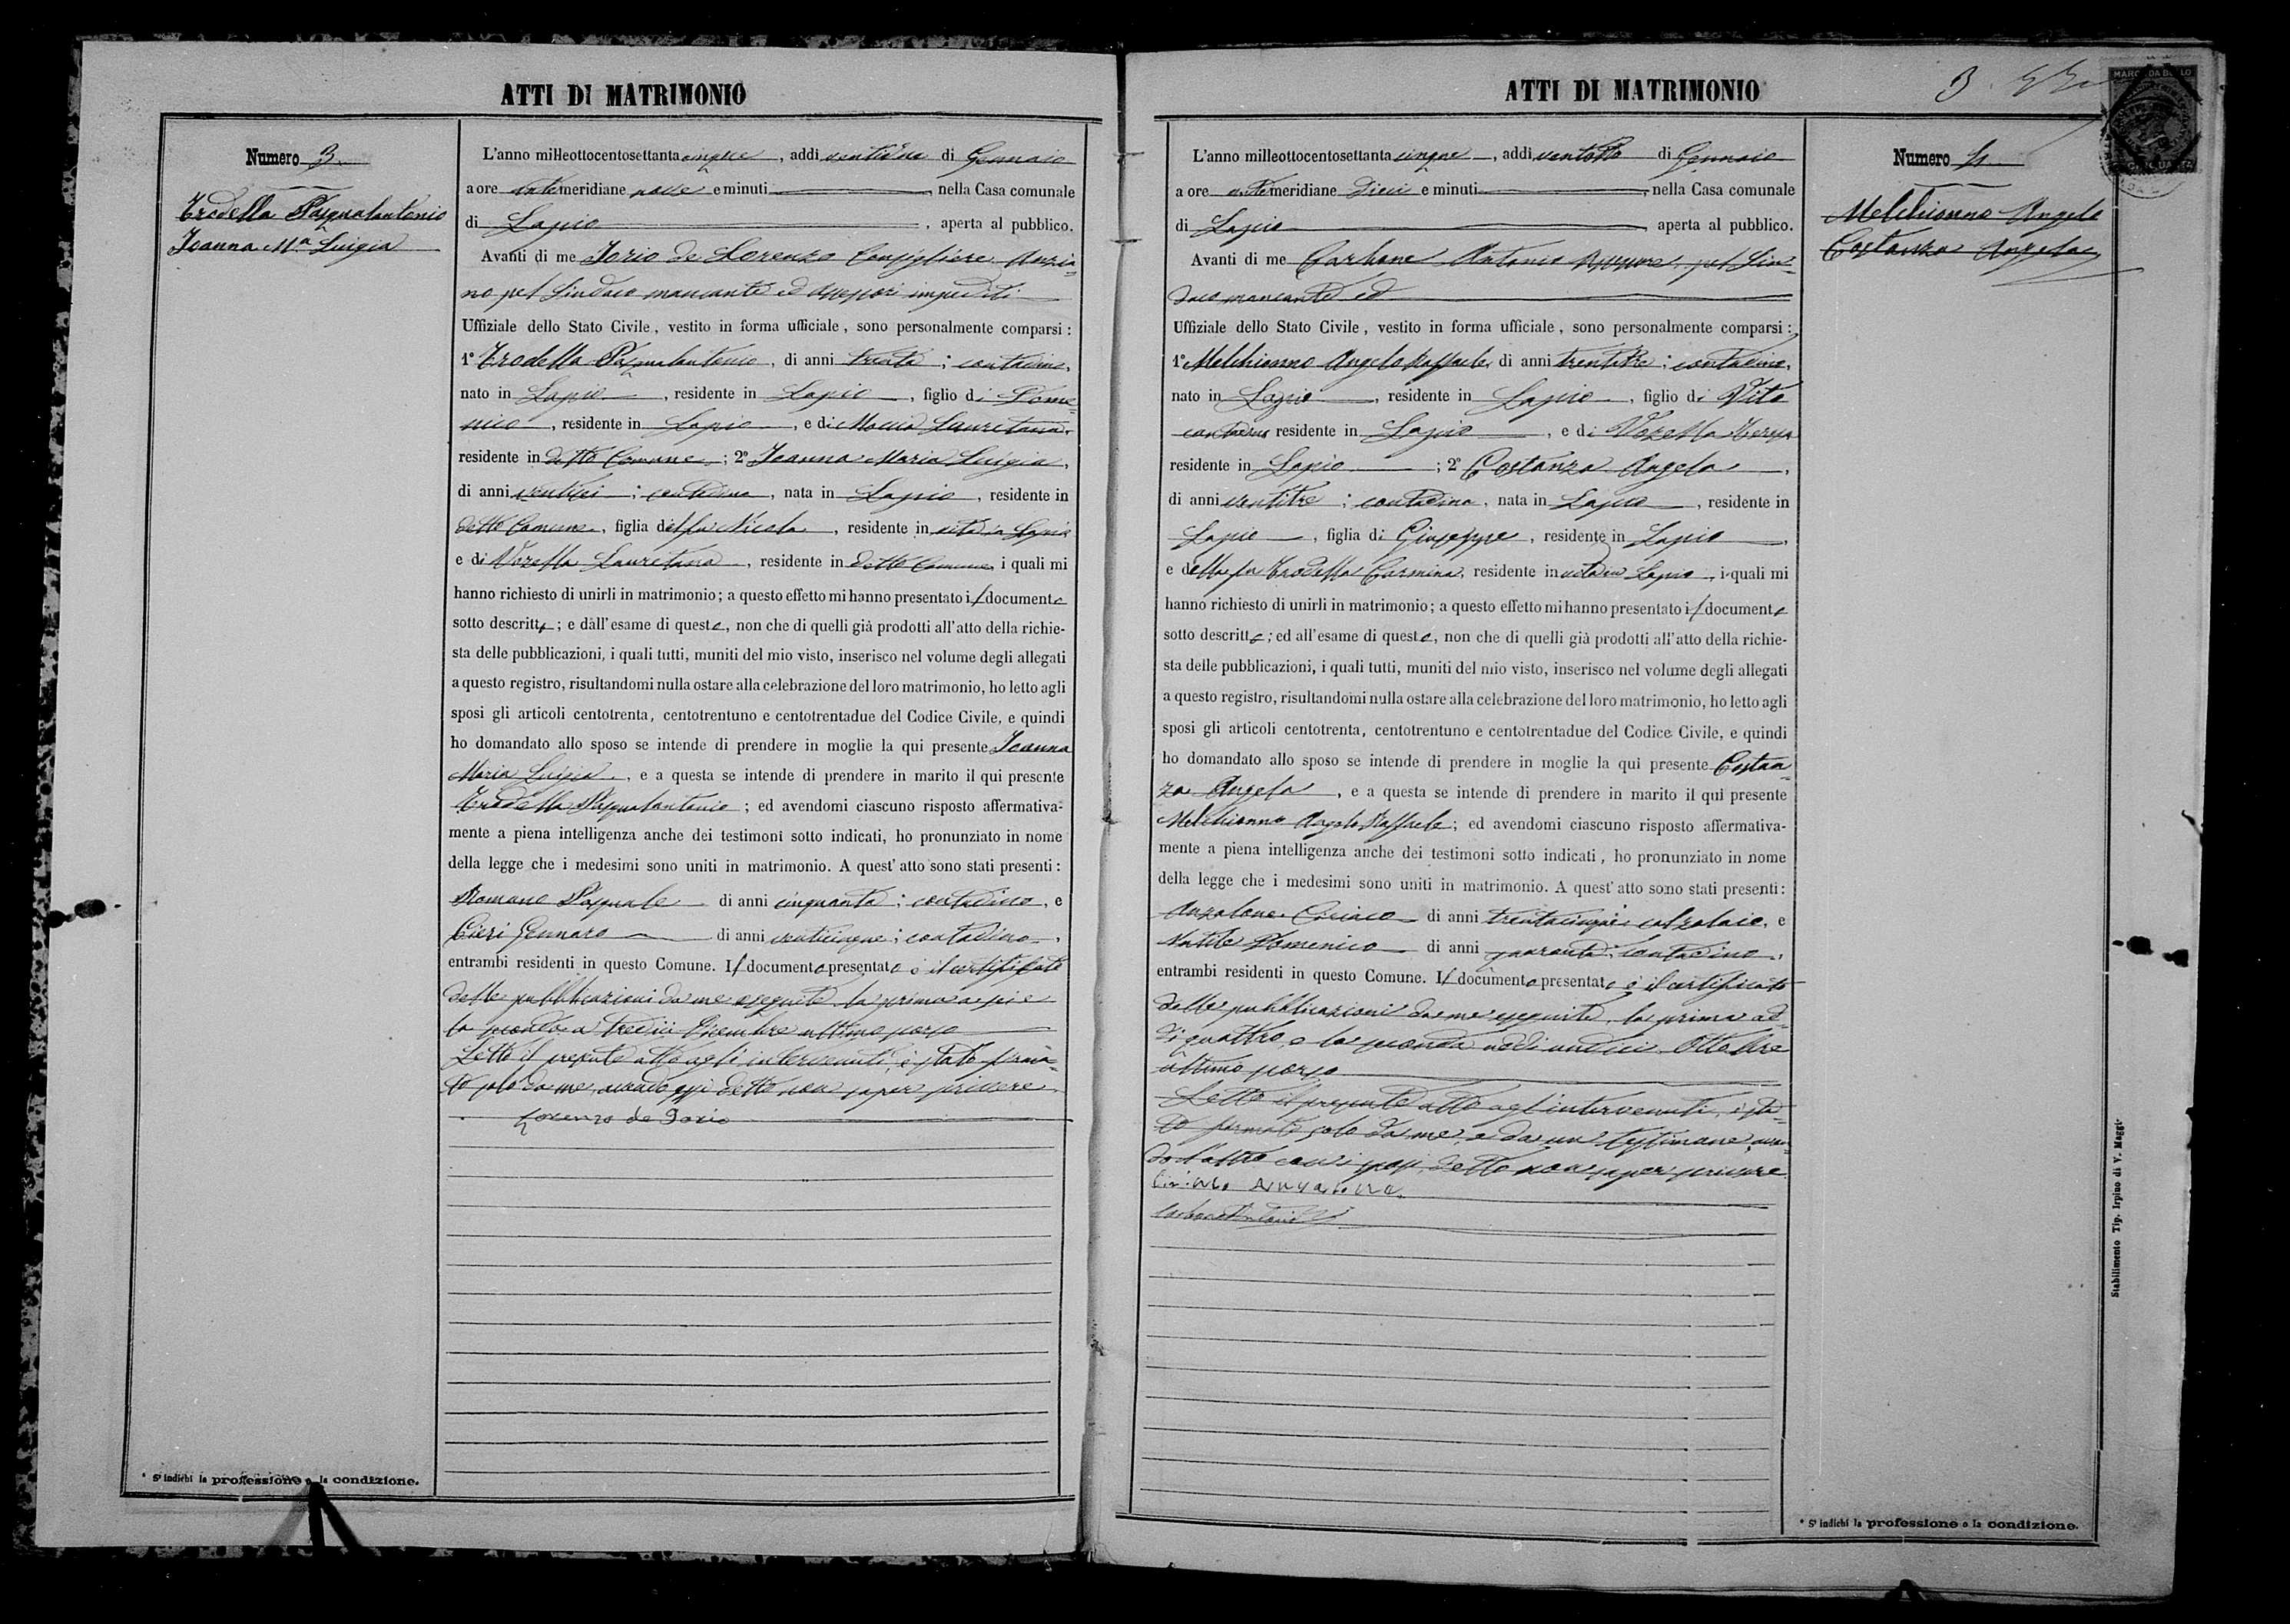 ATTI DI MATRIMONIO
Numero 3.
Trodella Pasqualantonio
Ioanna Mª Luigia
L'anno milleottocentosettantacinque, addì di Gennaio
a ore antemeridiane nove e minuti, nella Casa comunale
di Lapio, aperta al pubblico.
Avanti di me Iorio de Lorenzo Consigliere Anzia-
no pel Sindaco mancante ed assessori impediti
Uffiziale dello Stato Civile, vestito in forma ufficiale, sono personalmente comparsi:
1º Trodella Pasqualantonio, di anni trenta; contadino,
nato in Lapio, residente in Lapio, figlio di Dome-
nico, residente in Lapio, e di Moccia Lauretana,
residente in detto Comune; 2º Ioanna Maria Luigia,
di anni; contadina, nata in Lapio, residente in
detto Comune, figlia del fu Nicola, residente in vita in Lapio
e di Vozella Lauretana, residente in detto Comune i quali mi
hanno richiesto di unirli in matrimonio; a questo effetto mi hanno presentato il documento
sotto descritto; e dall'esame di questo, non che di quelli già prodotti all'atto della richie-
sta delle pubblicazioni, i quali tutti, muniti del mio visto, inserisco nel volume degli allegati
a questo registro, risultandomi nulla ostare alla celebrazione del loro matrimonio, ho letto agli
sposi gli articoli centotrenta, centotrentuno e centotrentadue del Codice Civile, e quindi
ho domandato allo sposo se intende di prendere in moglie la qui presente Ioanna
Maria Luigia, e a questa se intende di prendere in marito il qui presente
Trodella Pasqualantonio; ed avendomi ciascuno risposto affermativa-
mente a piena intelligenza anche dei testimoni sotto indicati, ho pronunziato in nome
della legge che i medesimi sono uniti in matrimonio. A quest'atto sono stati presenti:
Romano Pasquale di anni cinquanta; contadino, e
Cieri Gennaro di anni venticinque; contadino,
entrambi residenti in questo Comune. Il documento presentato è il certificato
delle pubblicazioni da me eseguite la prima a sei e
la seconda a tredici Dicembre ultimo scorso
Letto il presente atto agli intervenuti, è stato firma-
to solo da me, avendo essi detto non saper scrivere
Lorenzo de Iorio
* Si indichi la professione o la condizione.
ATTI DI MATRIMONIO
3.
MARCA DA BOLLO
Numero 4
Melchionno Angelo
Costanza Angela
L'anno milleottocentosettantacinque, addì ventotto di Gennaio
a ore antemeridiane dieci e minuti, nella Casa comunale
di Lapio, aperta al pubblico.
Avanti di me Carbone Antonio Assessore pel Sin-
daco mancante ed
Uffiziale dello Stato Civile, vestito in forma ufficiale, sono personalmente comparsi:
1º Melchionno Angelo Raffaele, di anni trentatre; contadino,
nato in Lapio, residente in Lapio, figlio di Vito
contadino residente in Lapio, e di Vozella Teresa
residente in Lapio; 2º Costanza Angela,
di anni ventitre; contadina, nata in Lapio, residente in
Lapio, figlia di Giuseppe, residente in Lapio,
e della fu Trodella Carmina, residente in vita in Lapio, i quali mi
hanno richiesto di unirli in matrimonio; a questo effetto mi hanno presentato il documento
sotto descritto; ed all'esame di questo, non che di quelli già prodotti all'atto della richie-
sta delle pubblicazioni, i quali tutti, muniti del mio visto, inserisco nel volume degli allegati
a questo registro, risultandomi nulla ostare alla celebrazione del loro matrimonio, ho letto agli
sposi gli articoli centotrenta, centotrentuno e centotrentadue del Codice Civile, e quindi
ho domandato allo sposo se intende di prendere in moglie la qui presente Costan-
za Angela, e a questa se intende di prendere in marito il qui presente
Melchionno Angelo Raffaele; ed avendomi ciascuno risposto affermativa-
mente a piena intelligenza anche dei testimoni sotto indicati, ho pronunziato in nome
della legge che i medesimi sono uniti in matrimonio. A quest'atto sono stati presenti:
Anzalone Ciriaco di anni trentacinque calzolaio, e
Natile Domenico di anni quaranta; contadino,
entrambi residenti in questo Comune. Il documento presentato è il certificato
delle pubblicazioni da me eseguite, la prima ad-
dì quattro e la seconda addì undici Ottobre
ultimo scorso
Letto il presente atto agl'intervenuti, è sta-
to firmato solo da me, e da un testimone, aven-
do l'altro con i sposi detto non saper scrivere
Ciriaco Anzalone
Carbone Antonio
Stabilimento Tip. Irpino di V. Maggi
* Si indichi la professione o la condizione.